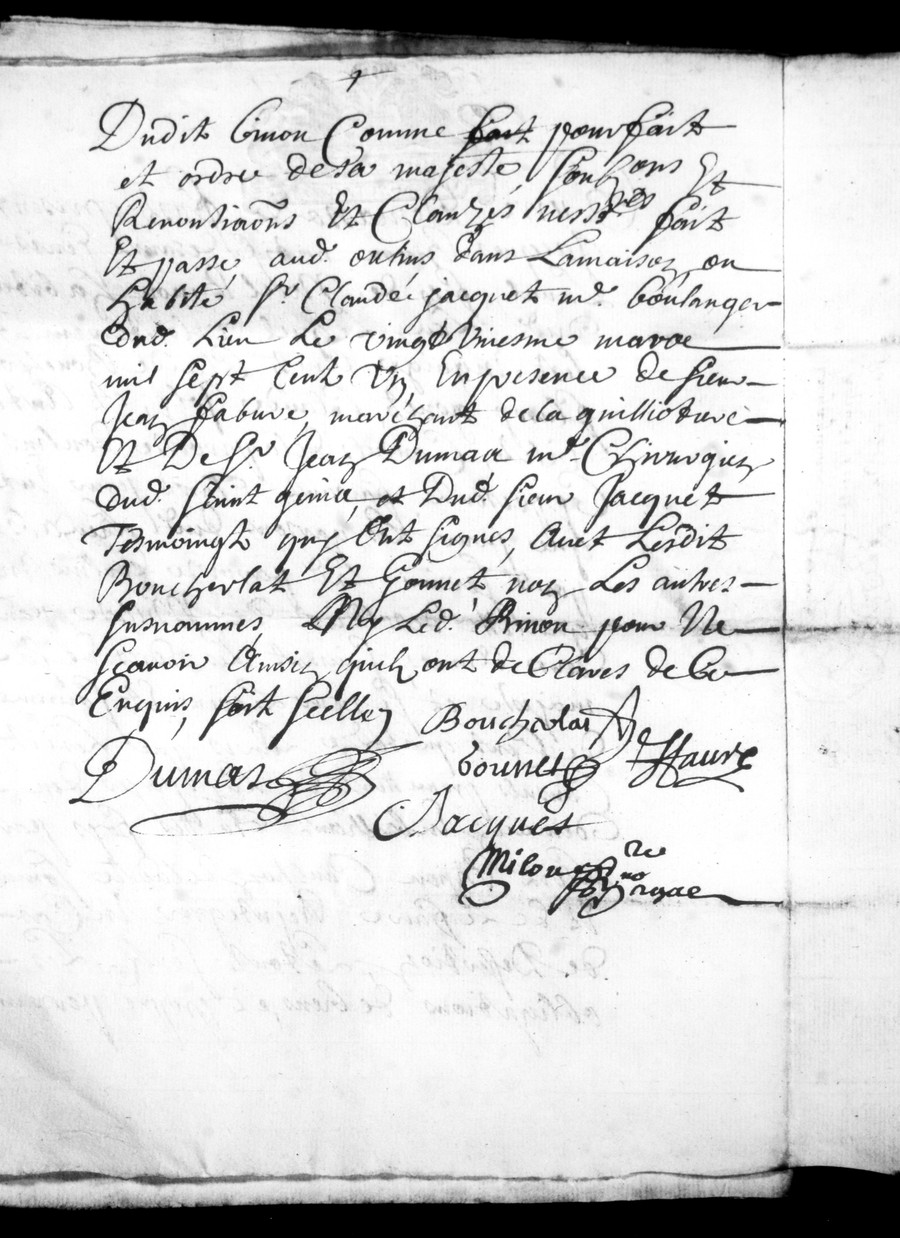 4
Dudit Simon Comme fait pour fait
et ordre de sa majesté, soubz ons Et
Renontiaons Et Clauzes ness.res fait
Et passé aud. oulins dans Lamaison ou
habite Sr Claude jacquet md. boulanger
dud. Lieu Le vingt Uniesme
mil sept Cent Un En presence de sieur
Jean fabure, marchant de la guilliotiere
Et De Sr. Jean Dumas mtre. Chirurgien
dud. saint genis, et Dud. sieur Jacquet
Tesmoingtz quy Ont signés, Avec Lesdit
Boucherlat Et Gonnet non Les autres
susnommés, Ny Led. Simon pour Ne
scavoir Ainsin quilz ont de Clarés de Ce
Enquis, soit scellé
Boucherlat
Dumas
Gonnet
Faure
Jacquet
Milon